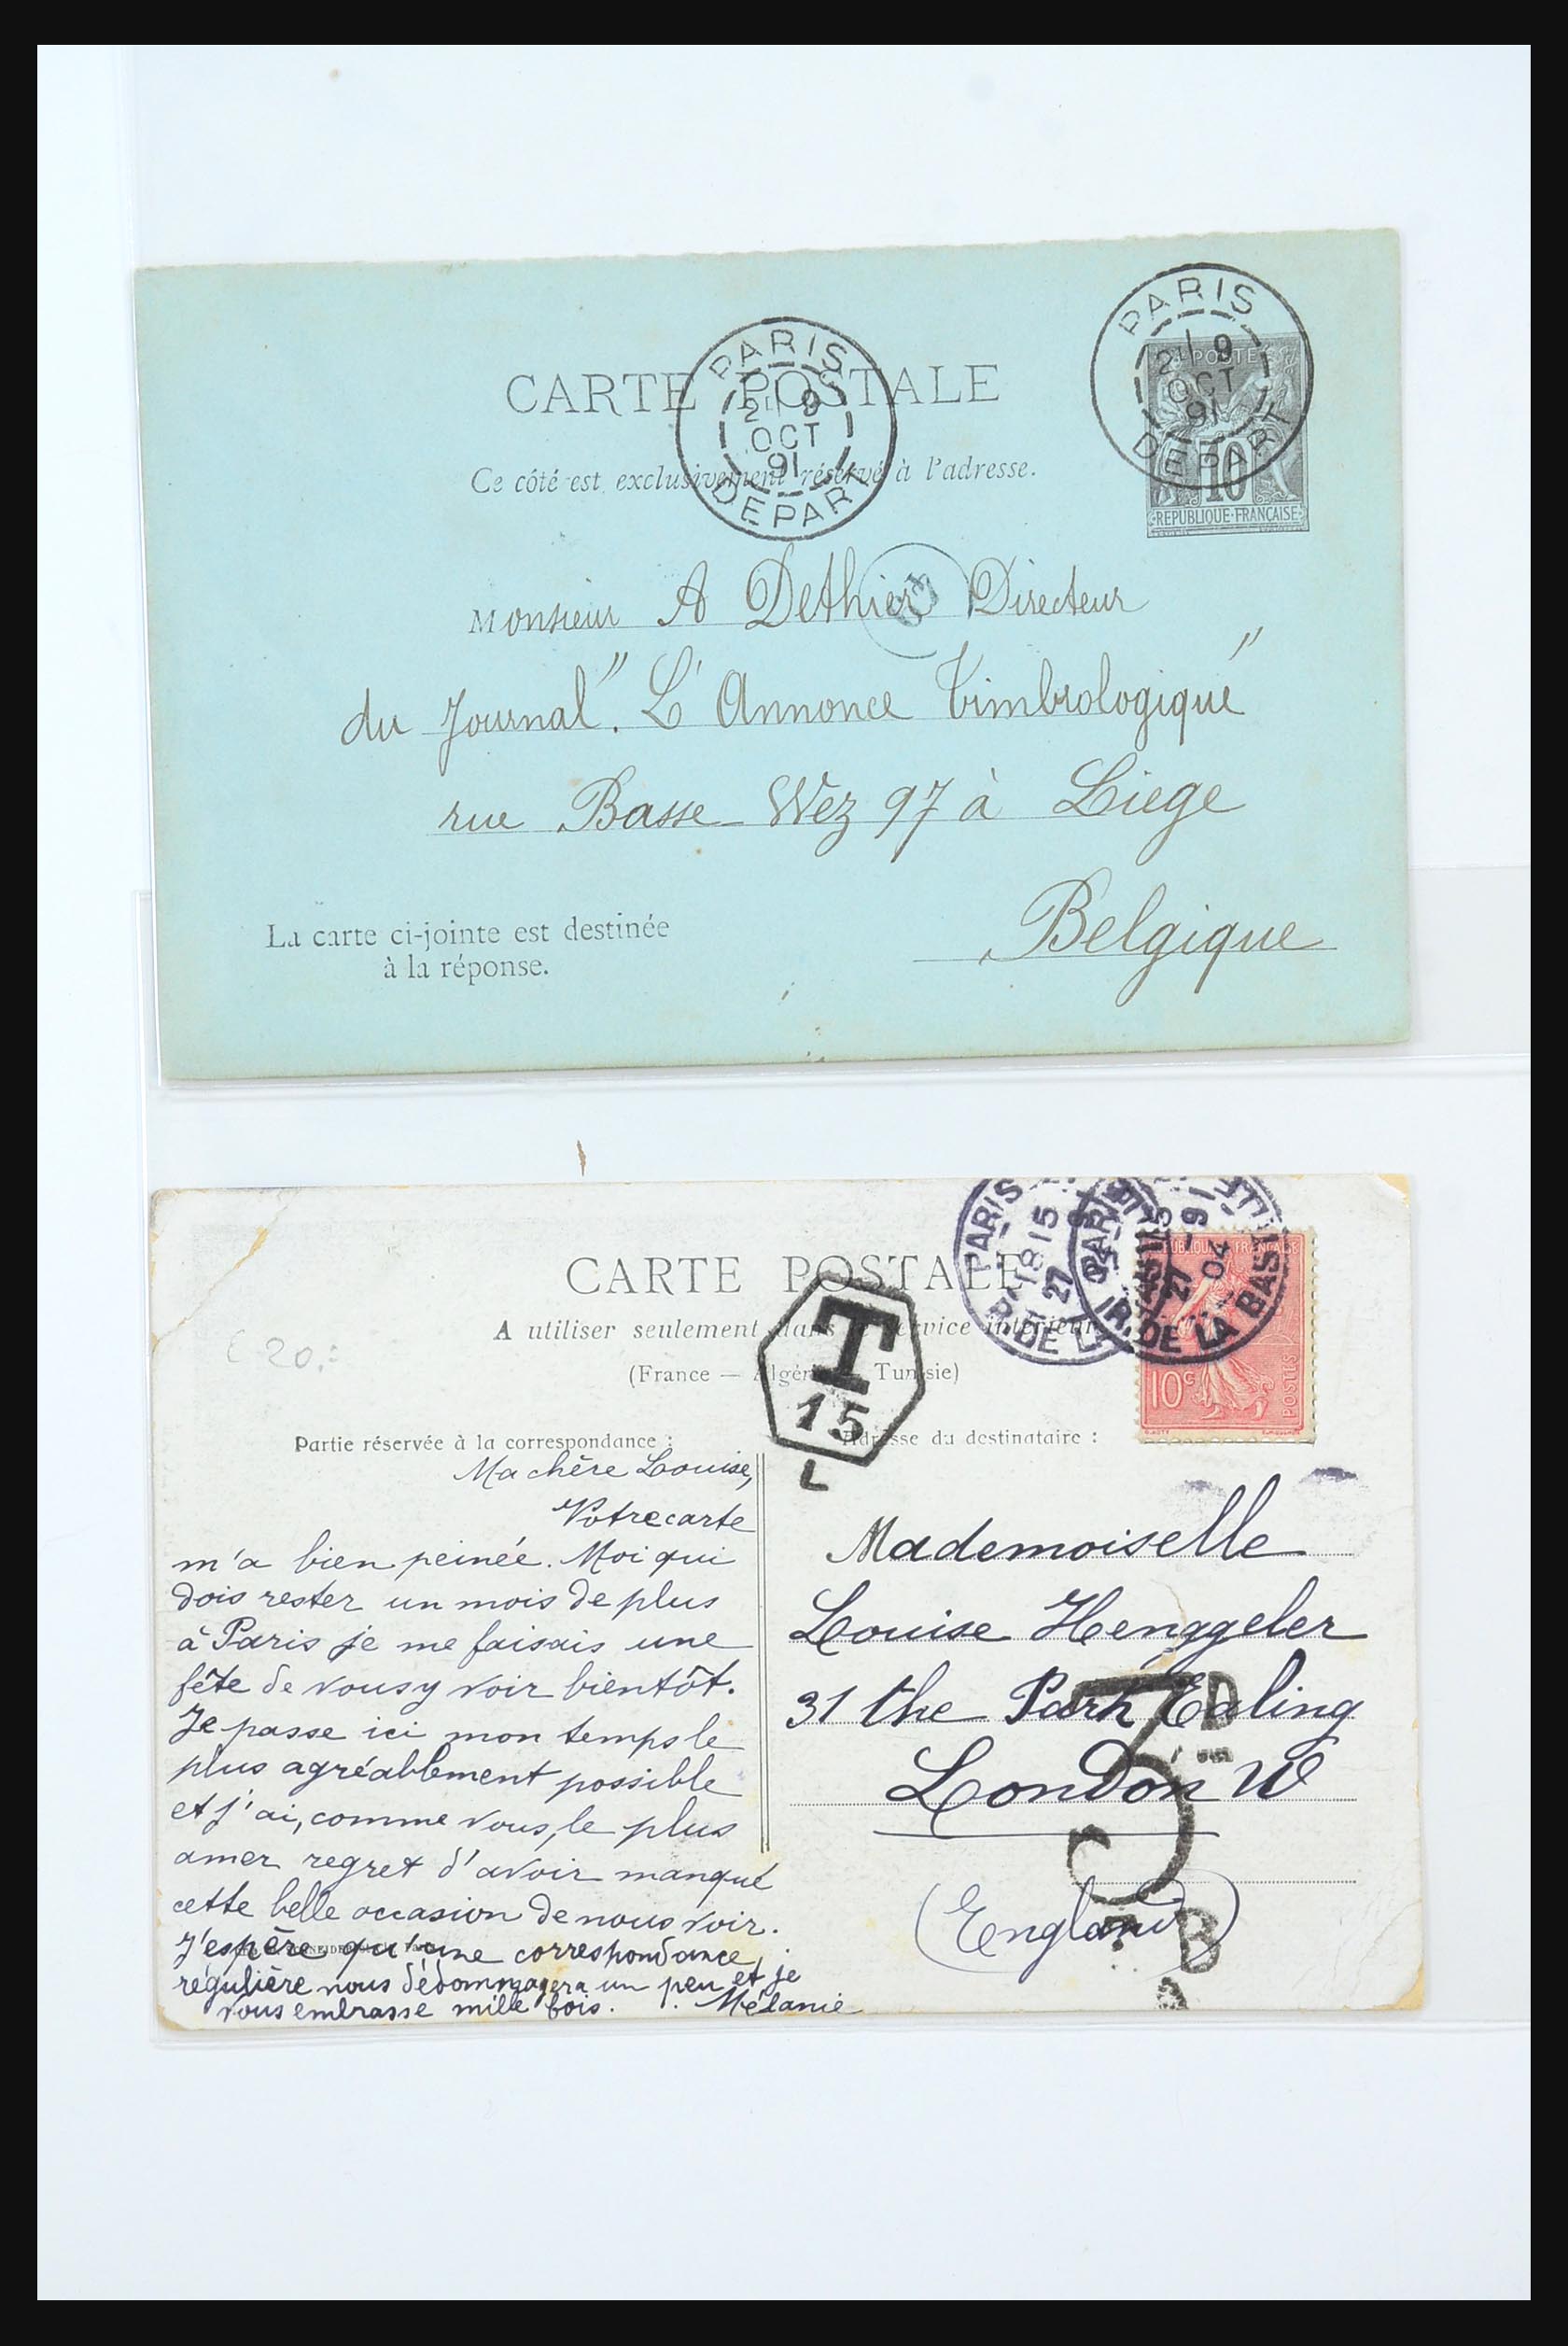 PARIS
2E 9
OCT
91
DEPART
PARIS
2E 9
OCT
91
DEPART
POSTES
10
REPUBLIQUE FRANÇAISE
CARTE POSTALE
Ce côté est exclusivement réservé à l'adresse.
Monsieur A Dethier Directeur
du Journal "L'Annonce Timbrologique"
rue Basse-Wez 97 à Liege
Belgique
La carte ci-jointe est destinée
à la réponse.
CARTE POSTALE
A utiliser seulement dans le service intérieur
(France — Algérie — Tunisie)
PARIS
18 15
27
DE LA
PARIS
27 -9
04
R. DE LA BASTILLE
REPUBLIQUE FRANÇAISE
10c
POSTES
T
15
L
€ 20.=
Partie réservée à la correspondance :
Adresse du destinataire :
Ma chère Louise,
Votre carte
m'a bien peinée. Moi qui
dois rester un mois de plus
à Paris je me faisais une
fête de vous y voir bientôt.
Je passe ici mon temps le
plus agréablement possible
et j'ai, comme vous, le plus
amer regret d'avoir manqué
cette belle occasion de nous voir.
J'espère qu'une correspondance
régulière nous dédommagera un peu et je
vous embrasse mille fois. Mélanie
Mademoiselle
Louise Henggeler
31 the Park Ealing
London W
(England)
5 D
B